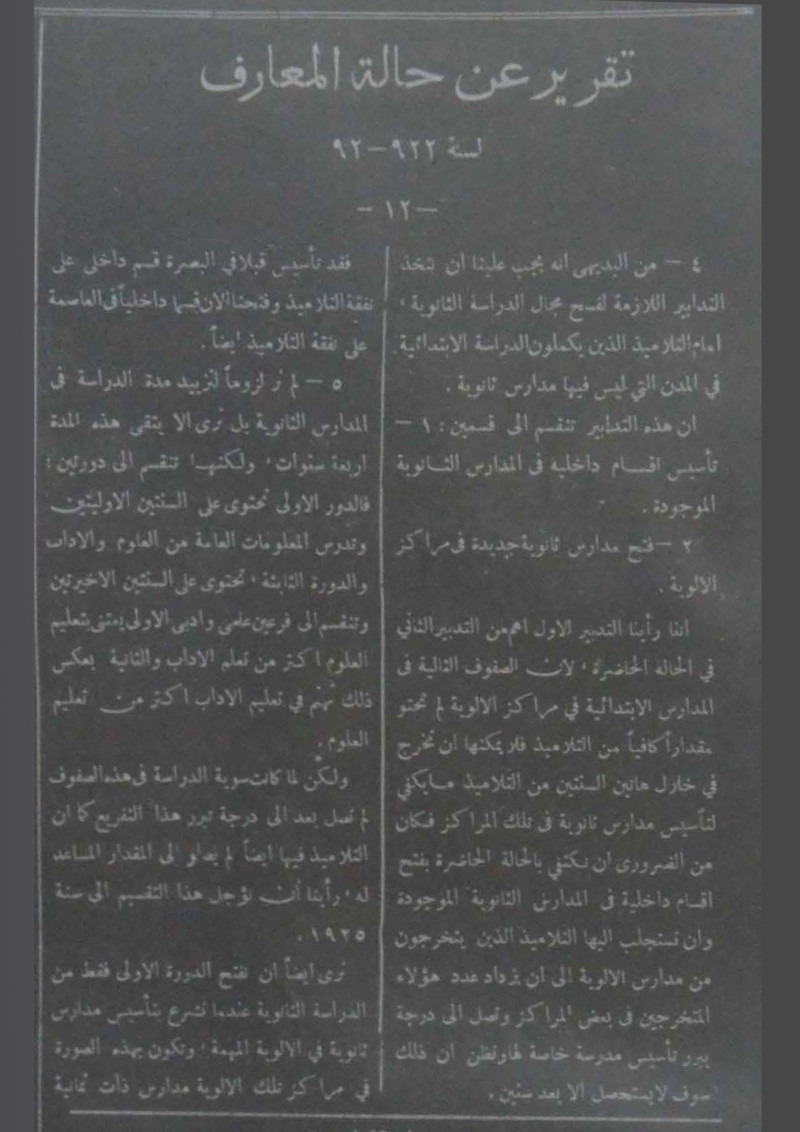 تقرير عن حالة المعارف
لسنة ٩٢٢ – ٩٢
– ١٢ –
٤ – من البديهي انه يجب علينا ان نتخذ
التدابير اللازمة لفسح مجال الدراسة الثانوية ،
امام التلاميذ الذين يكملون الدراسة الابتدائية
في المدن التي ليس فيها مدارس ثانوية .
ان هذه التدابير تنقسم الى قسمين : ١ –
تأسيس اقسام داخليه فى المدارس الثانوية
الموجودة .
٢ – فتح مدارس ثانوية جديدة فى مراكز
الالوية .
اننا رأينا التدبير الاول اهم من التدبير الثاني
في الحالة الحاضرة ، لان الصفوف التالية فى
المدارس الابتدائية في مراكز الالوية لم تحتو
مقداراً كافياً من التلاميذ فلا يمكنها ان تخرج
في خلال هاتين السنتين من التلاميذ ما يكفي
لتأسيس مدارس ثانوية فى تلك المراكز فكان
من الضرورى ان نكتفي بالحالة الحاضرة بفتح
اقسام داخلية فى المدارس الثانوية الموجودة
وان نستجلب اليها التلاميذ الذين يتخرجون
من مدارس الالوية الى ان يزداد عدد هؤلاء
المتخرجين فى بعض المراكز وتصل الى درجة
يبرر تأسيس مدرسة خاصة لها ونظن ان ذلك
سوف لا يستحصل الا بعد سنين .
فقد تأسيس قبلا في البصرة قسم داخلى على
نفقة التلاميذ وفتحنا الان قسما داخلياً فى العاصمة
على نفقة التلاميذ ايضاً .
٥ – لم نر لزوماً لتزييد مدة الدراسة فى
المدارس الثانوية بل نرى الا يتقى هذه المدة
اربعة سنوات ، ولكنها تنقسم الى دورتين :
فالدور الاولى تحتوى على السنتين الاوليتين
وتدرس المعلومات العامة من العلوم والاداب
والدورة الثانية ، تحتوى على السنتين الاخيرتين
وتنقسم الى فرعين علمى وادبى الاولى يعتنى بتعليم
العلوم اكثر من تعلم الاداب والثانية بعكس
ذلك تهتم في تعليم الاداب اكثر من تعليم
العلوم .
ولكن لما كانت سوية الدراسة فى هذه الصفوف
لم تصل بعد الى درجة تبرر هذا التفريع كما ان
التلاميذ فيها ايضاً لم يصلو الى المقدار المساعد
له ، رأينا ان نؤجل هذا التقسيم الى سنة
١٩٢٥ .
نرى ايضاً ان نفتح الدورة الاولى فقط من
الدراسة الثانوية عندما نشرع بتأسيس مدارس
ثانوية في الالوية المهمة ، وتكون بهذه الصورة
في مراكز تلك الالوية مدارس ذات ثمانية